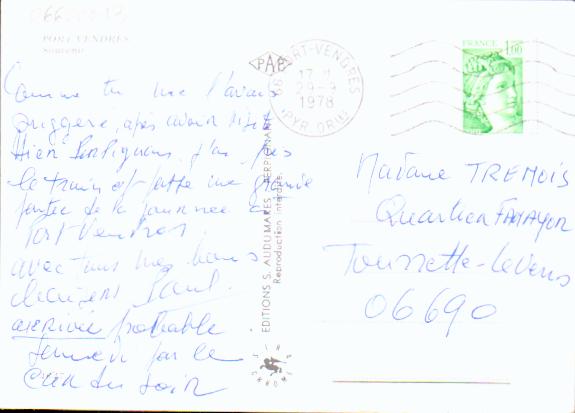 06600013
PORT VENDRES
Souvenir
PAP
66 PORT-VENDRES
17 H
29-9
1978
PYR. ORIles
FRANCE 1,00
Comme tu me l'avais
suggéré, après avoir visité
Hier Perpignan, j'ai pris
le train et passé une
partie de la journée à
Port Vendres.
avec tous mes bons
Paul.
arrivée probable
par le
du soir
Madame TREMOIS
Quartier FAHAYOR
Tourrette-Levens
06690
EDITIONS S. AUDUMARES - PERPIGNAN
Reproduction interdite.